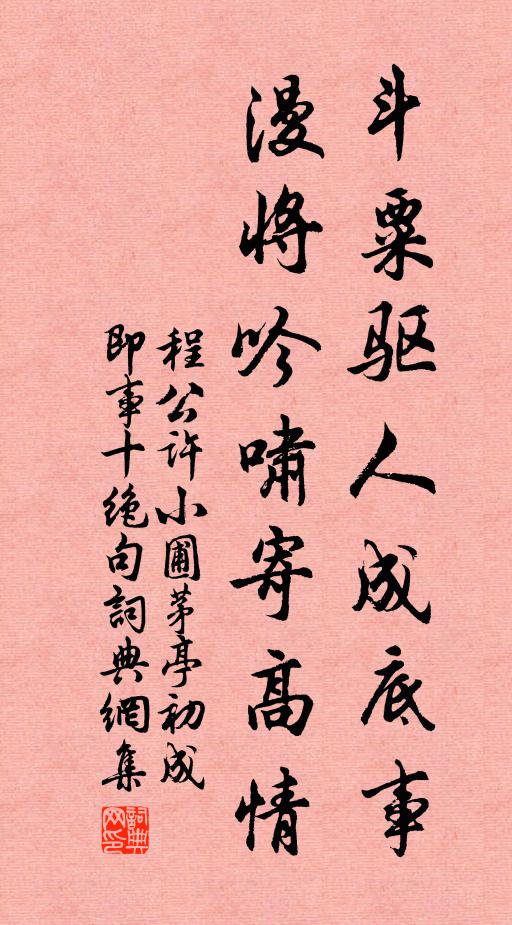 斗粟驱人成底事
漫将吟啸寄高情
程公许小圃茅亭初成
即事十绝句詞典網集
詞典网印